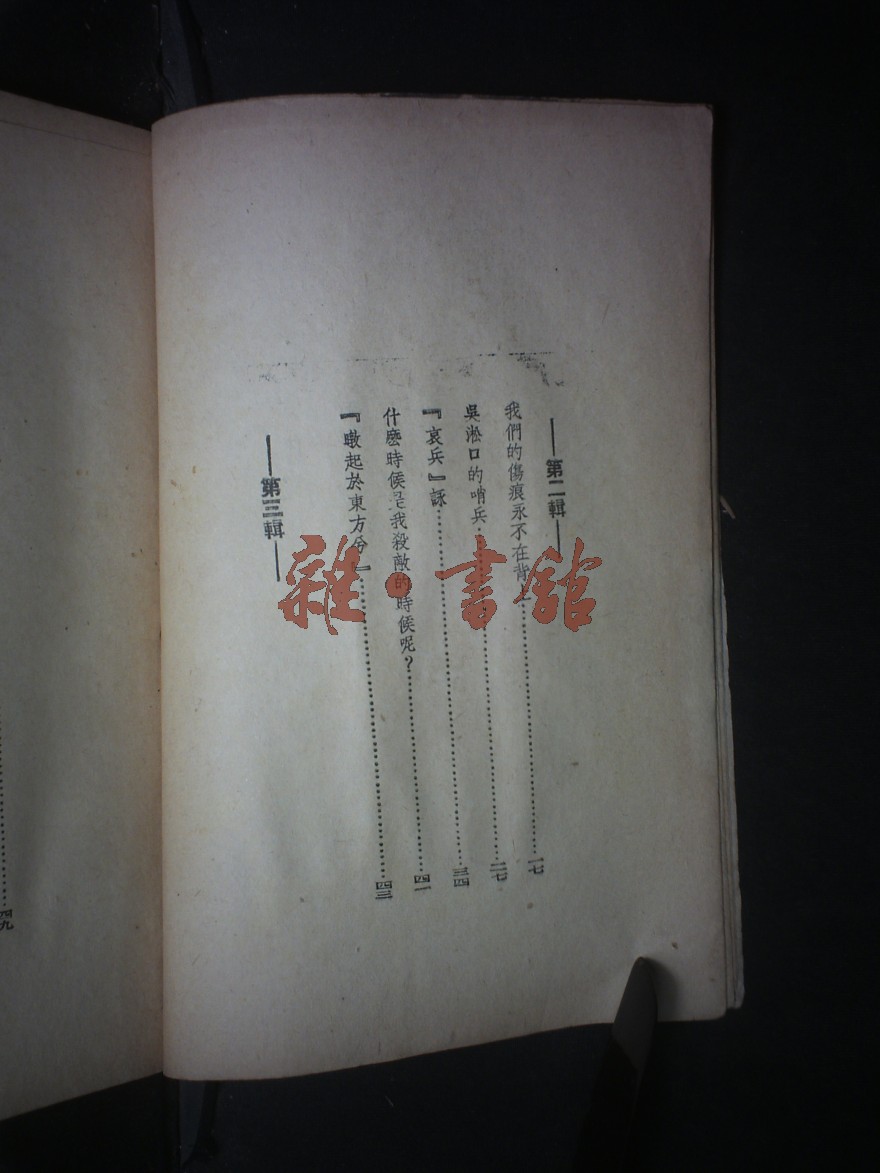 ——第二輯——
我們的傷痕永不在背上……………………一七
吳淞口的哨兵……………………二七
『哀兵』詠……………………三四
什麽時候是我殺敵的時候呢？……………………四一
『暾起於東方兮』……………………四三
——第三輯——
……………………四九
雜·書館